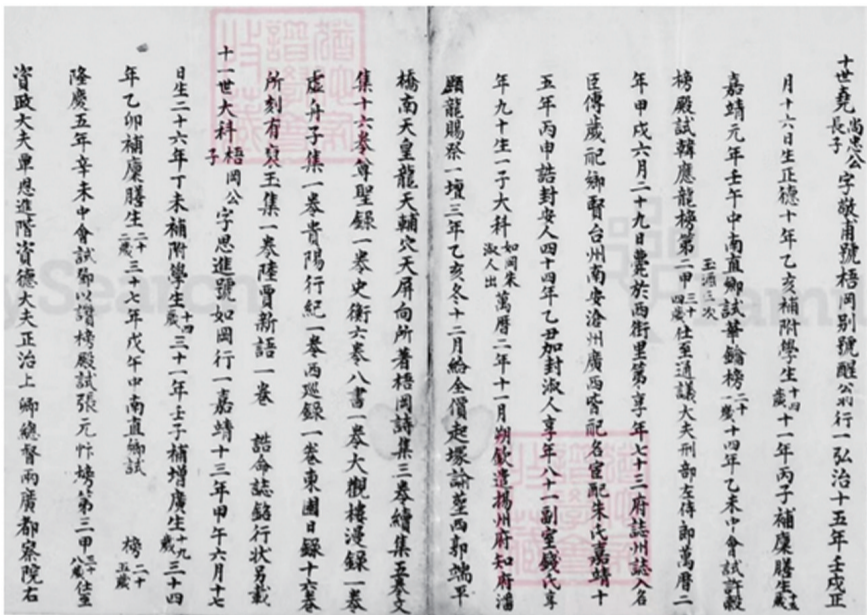 十世堯 尚忠公長子 字敬甫號梧岡別號醒翁行一弘治十五年壬戌正
月十六日生正德十年乙亥補附學生 十四歲 十一年丙子補廩膳生
嘉靖元年壬午中南直鄉試華鑰榜 二十一歲 十四年乙未中會試許榖
榜殿試韓應龍榜第二甲 三十四歲 仕至通議大夫刑部左侍郎萬曆二
年甲戌六月二十九日薨於西街里第享年七十三府誌州誌入名
臣傳歲配鄉賢台州南安滄州廣西皆配名宦配朱氏嘉靖十
五年丙申誥封安人四十四年乙丑加封淑人享年八十一副室錢氏享
年九十生一子大科 如岡朱淑人出 萬曆二年十一月 欽遣揚州府知府
顧龍賜祭一壇三年乙亥冬十二月給全價起塚諭葬西郭端平
橋南天皇龍天輔穴天屏向所著梧岡詩集三卷續集五卷文
集十六卷尊聖錄一卷史衡六卷八書一卷大觀樓漫錄一卷
虛舟子集一卷貴陽行紀一卷西巡錄一卷東圃日錄十六卷
所刻有寶玉集一卷陸賈新語一卷 誥命誌銘行狀另載
十一世大科 梧岡公子 字思進號如岡行一嘉靖十三年甲午六月十七
日生二十六年丁未補附學生 十四歲 三十一年壬子補增廣生 十九歲 三十四
年乙卯補廩膳生 二十二歲 三十七年戊午中南直鄉試 榜 二十五歲
隆慶五年辛未中會試鄧以讚榜殿試張元忭榜第三甲 三十八歲 仕至
資政大夫覃恩進階資德大夫正治上卿總督兩廣都察院右